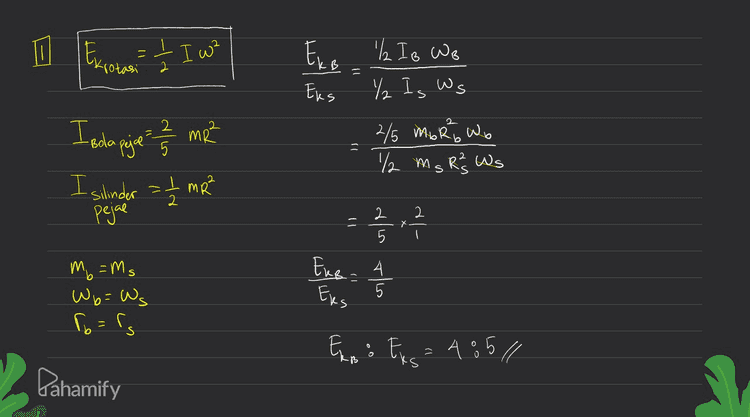 1
E_k rotasi = 1/2 I ω²
I Bola pejal = 2/5 mR²
I silinder pejal = 1/2 mR²
m_b = m_s
ω_b = ω_s
r_b = r_s
E_kB / E_ks = 1/2 I_B ω_B / 1/2 I_s ω_s
= 2/5 m_b R_b² ω_b / 1/2 m_s R_s² ω_s
= 2/5 × 2/1
E_kB / E_ks = 4/5
E_kB : E_ks = 4 : 5 //
Pahamify